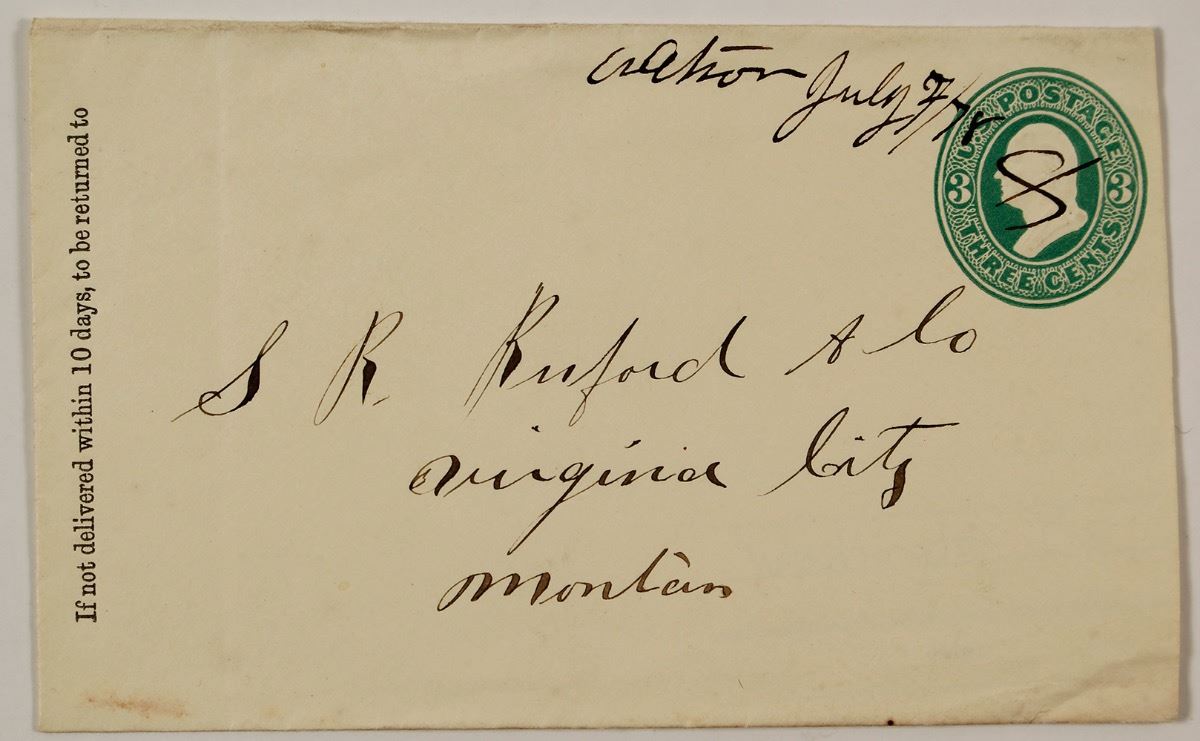 Watson July 7/78
U.S. POSTAGE
3 3
THREE CENTS
If not delivered within 10 days, to be returned to
S R Ruford & Co
Virginia City
Montan